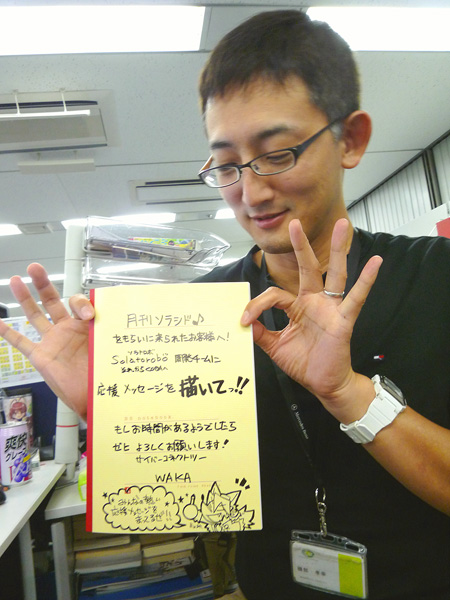 月刊ソラシド♪
をもらいに来られたお客様へ!
ソラトロボ
Solatorobo 開発チームに
それからCODAへ
応援メッセージを描いてっ!!
もしお時間があるようでしたら
ゼヒ よろしくお願いします!
サイバーコネクトツー
WAKA
みんなの熱い
応援メッセージを
まってるぜ!!